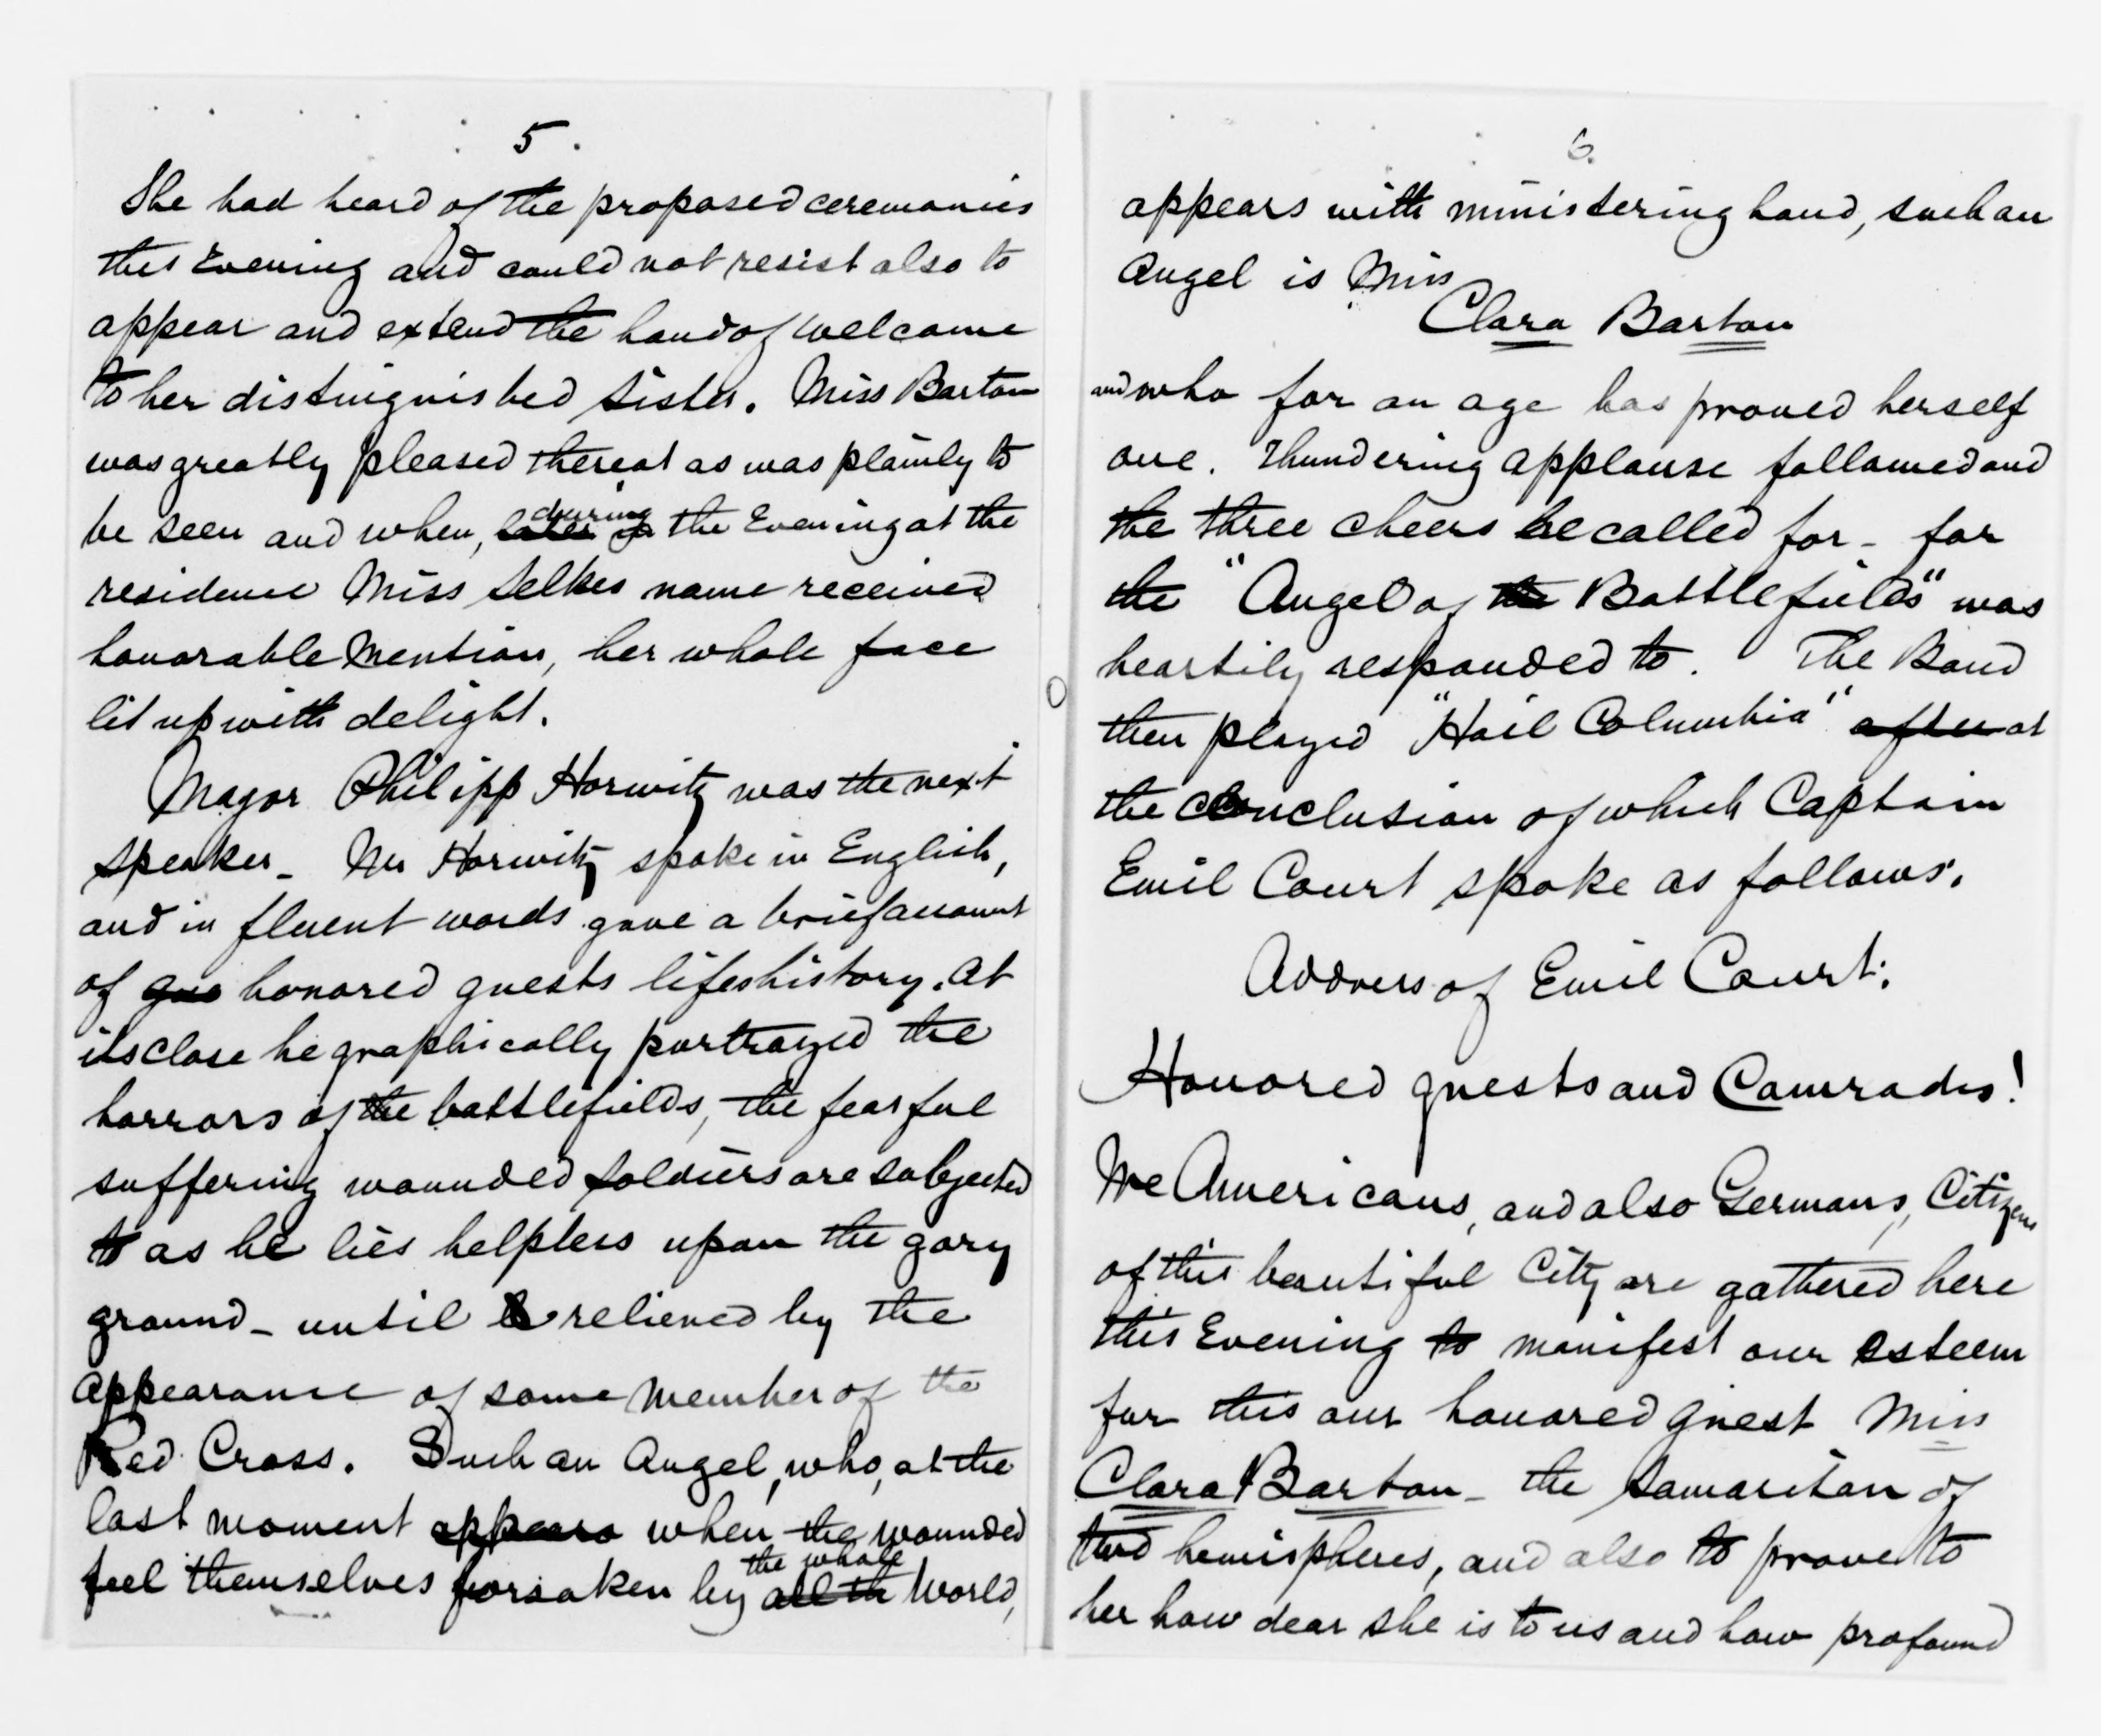 5.
She had heard of the proposed ceremonies
this Evening and could not resist also to
appear and extend the hand of welcome
to her distinguished sister. Miss Barton
was greatly pleased thereat as was plainly to
be seen and when, later in during the Evening at the
residence Miss Selkes name received
honorable mention, her whole face
lit up with delight.
Mayor Philipp Horwitz was the next
speaker_ Mr Horwitz spoke in English,
and in fluent words gave a brief account
of gue honored guests lifeshistory. At
its close he graphically portrayed the
horrors of the battlefields, the fearful
suffering wounded soldiers are subjected
to as he lies helpless upon the gory
ground_ until relieved by the
appearance of some member of the
Red Cross. Such an Angel, who, at the
last moment appears when the wounded
feel themselves forsaken by all the the whole World,
6.
appears with ministering hand, such an
Angel is Miss
Clara Barton
and who for an age has proved herself
one. Thundering applause followed and
the three cheers he called for_ for
the "Angel of the Battlefields" was
heartily responded to. The Band
then played "Hail Columbia" after at
the conclusion of which Captain
Emil Court spoke as follows.
Address of Emil Court:
Honored guests and Comrades!
We Americans, and also Germans, Citizens
of this beautiful City are gathered here
this Evening to manifest our esteem
for this our honored guest Miss
Clara Barton_ the Samaritan of
two hemispheres, and also to prove to
her how dear she is to us and how profound